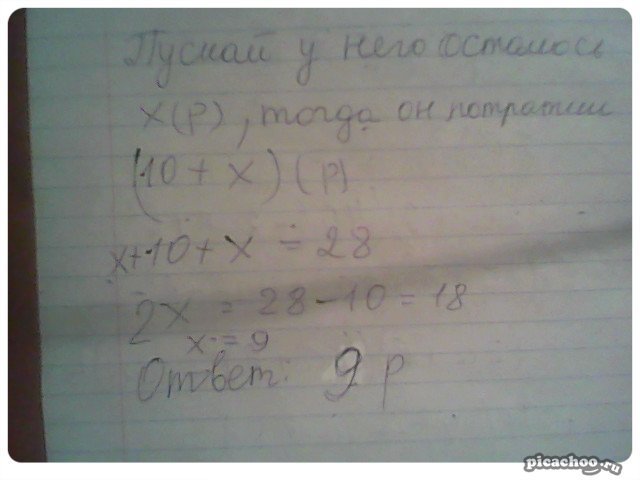 Пускай у него осталось
x(р), тогда он потратил
(10 + x) (р)
x+10+x = 28
2x = 28 - 10 = 18
x = 9
Ответ: 9 р
picachoo.ru